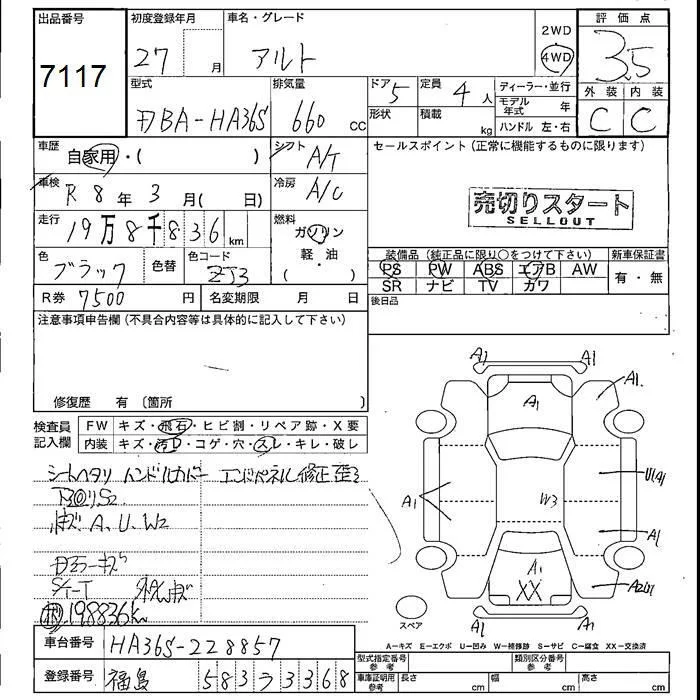 出品番号 初度登録年月 車名・グレード 評価点
7117 27 月 アルト 2WD 4WD 3.5
型式 排気量 ドア 5 定員 4人 ディーラー・並行 外装 内装
DBA-HA36S 660 cc 形状 積載 kg モデル年式 年 C C
ハンドル 左・右
車歴 自家用・( ) シフト A/T セールスポイント(正常に機能するものに限ります)
車検 R8年3月( 日) 冷房 A/C
売切りスタート
SELLOUT
走行 19万8千836km 燃料 ガソリン
軽・油
( )
色 ブラック 色替 色コード ZJ3 装備品(純正品に限り○をつけて下さい) 新車保証書
PS PW ABS エアB AW 有・無
SR ナビ TV カワ
R券 7500円 名変期限 月 日 後日品
注意事項申告欄(不具合内容等は具体的に記入して下さい)
修復歴 有〔箇所 〕
検査員記入欄 FW キズ・飛石・ヒビ割・リペア跡・X要
内装 キズ・汚レ・コゲ・穴・スレ・キレ・破レ
シートヘタリ ハンドルカバー エンドパネル修正歪3
A、U、W2
198836km
A1 A1
A1 A1
U1
A1 W3 A1
A1 XX
A1 A1
スペア
A=キズ E=エクボ U=凹み W=補修跡 S=サビ C=腐食 XX=交換済
車台番号 HA36S-228857
型式指定番号 参考 類別区分番号 参考
登録番号 福島 583 ヲ 3368
車庫証明用 参考 長さ cm 幅 cm 高さ cm